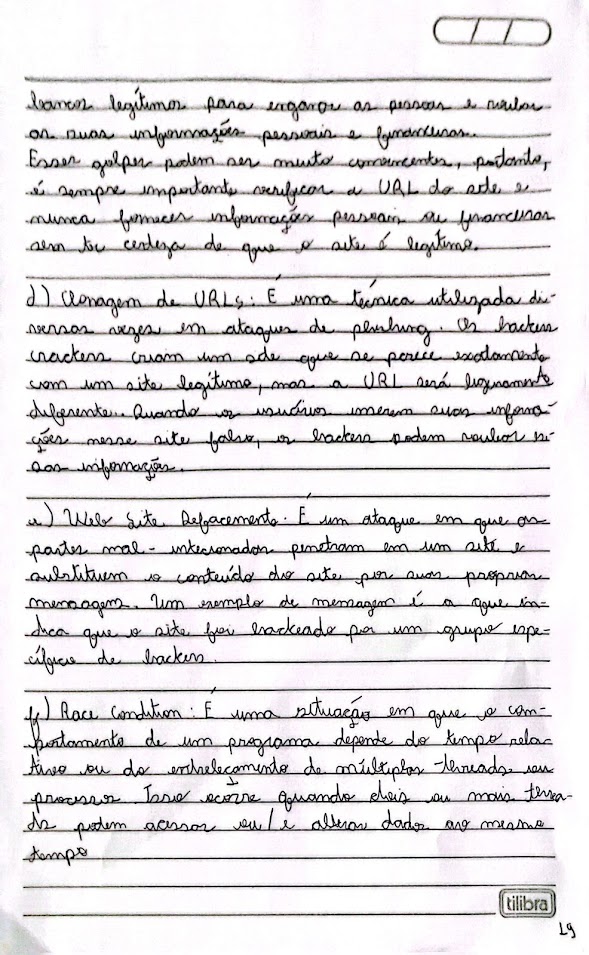 bancos legítimos para enganar as pessoas e roubar
as suas informações pessoais e financeiras.
Esses golpes podem ser muito convincentes, portanto,
é sempre importante verificar a URL do site e
nunca fornecer informações pessoais ou financeiras
sem ter certeza de que o site é legítimo.
d) Clonagem de URLs: É uma técnica utilizada di-
versas vezes em ataques de phishing. Os hackers
crackers criam um site que se parece exatamente
com um site legítimo, mas a URL será ligeiramente
diferente. Quando os usuários inserem suas informa-
ções nesse site falso, os hackers podem roubar es-
sas informações.
e) Web Site Defacement. É um ataque em que as
partes mal-intecionadas penetram em um site e
substituem o conteúdo do site por suas próprias
mensagens. Um exemplo de mensagem é a que in-
dica que o site foi hackeado por um grupo espe-
cífico de hackers.
f) Race Condition: É uma situação em que o com-
portamento de um programa depende do tempo rela-
tivo ou do entrelaçamento de múltiplas threads ou
processos. Isso ocorre quando dois ou mais threa-
ds podem acessar ou/e alterar dados ao mesmo
tempo
tilibra
19